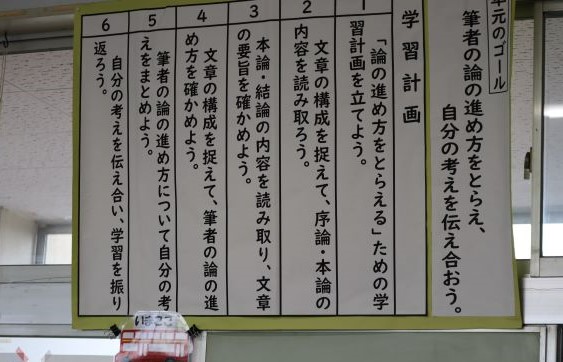 単元のゴール
筆者の論の進め方をとらえ、
自分の考えを伝え合おう。
学習計画
1
「論の進め方をとらえる」ための学
習計画を立てよう。
2
文章の構成を捉えて、序論・本論の
内容を読み取ろう。
3
本論・結論の内容を読み取り、文章
の要旨を確かめよう。
4
文章の構成を捉えて、筆者の論の進
め方を確かめよう。
5
筆者の論の進め方について自分の考
えをまとめよう。
6
自分の考えを伝え合い、学習を振り
返ろう。
いまここ